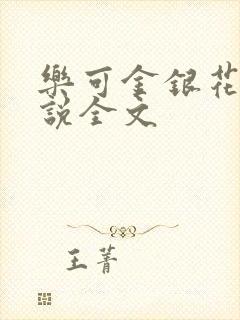 樂可金銀花
說全文
王菁